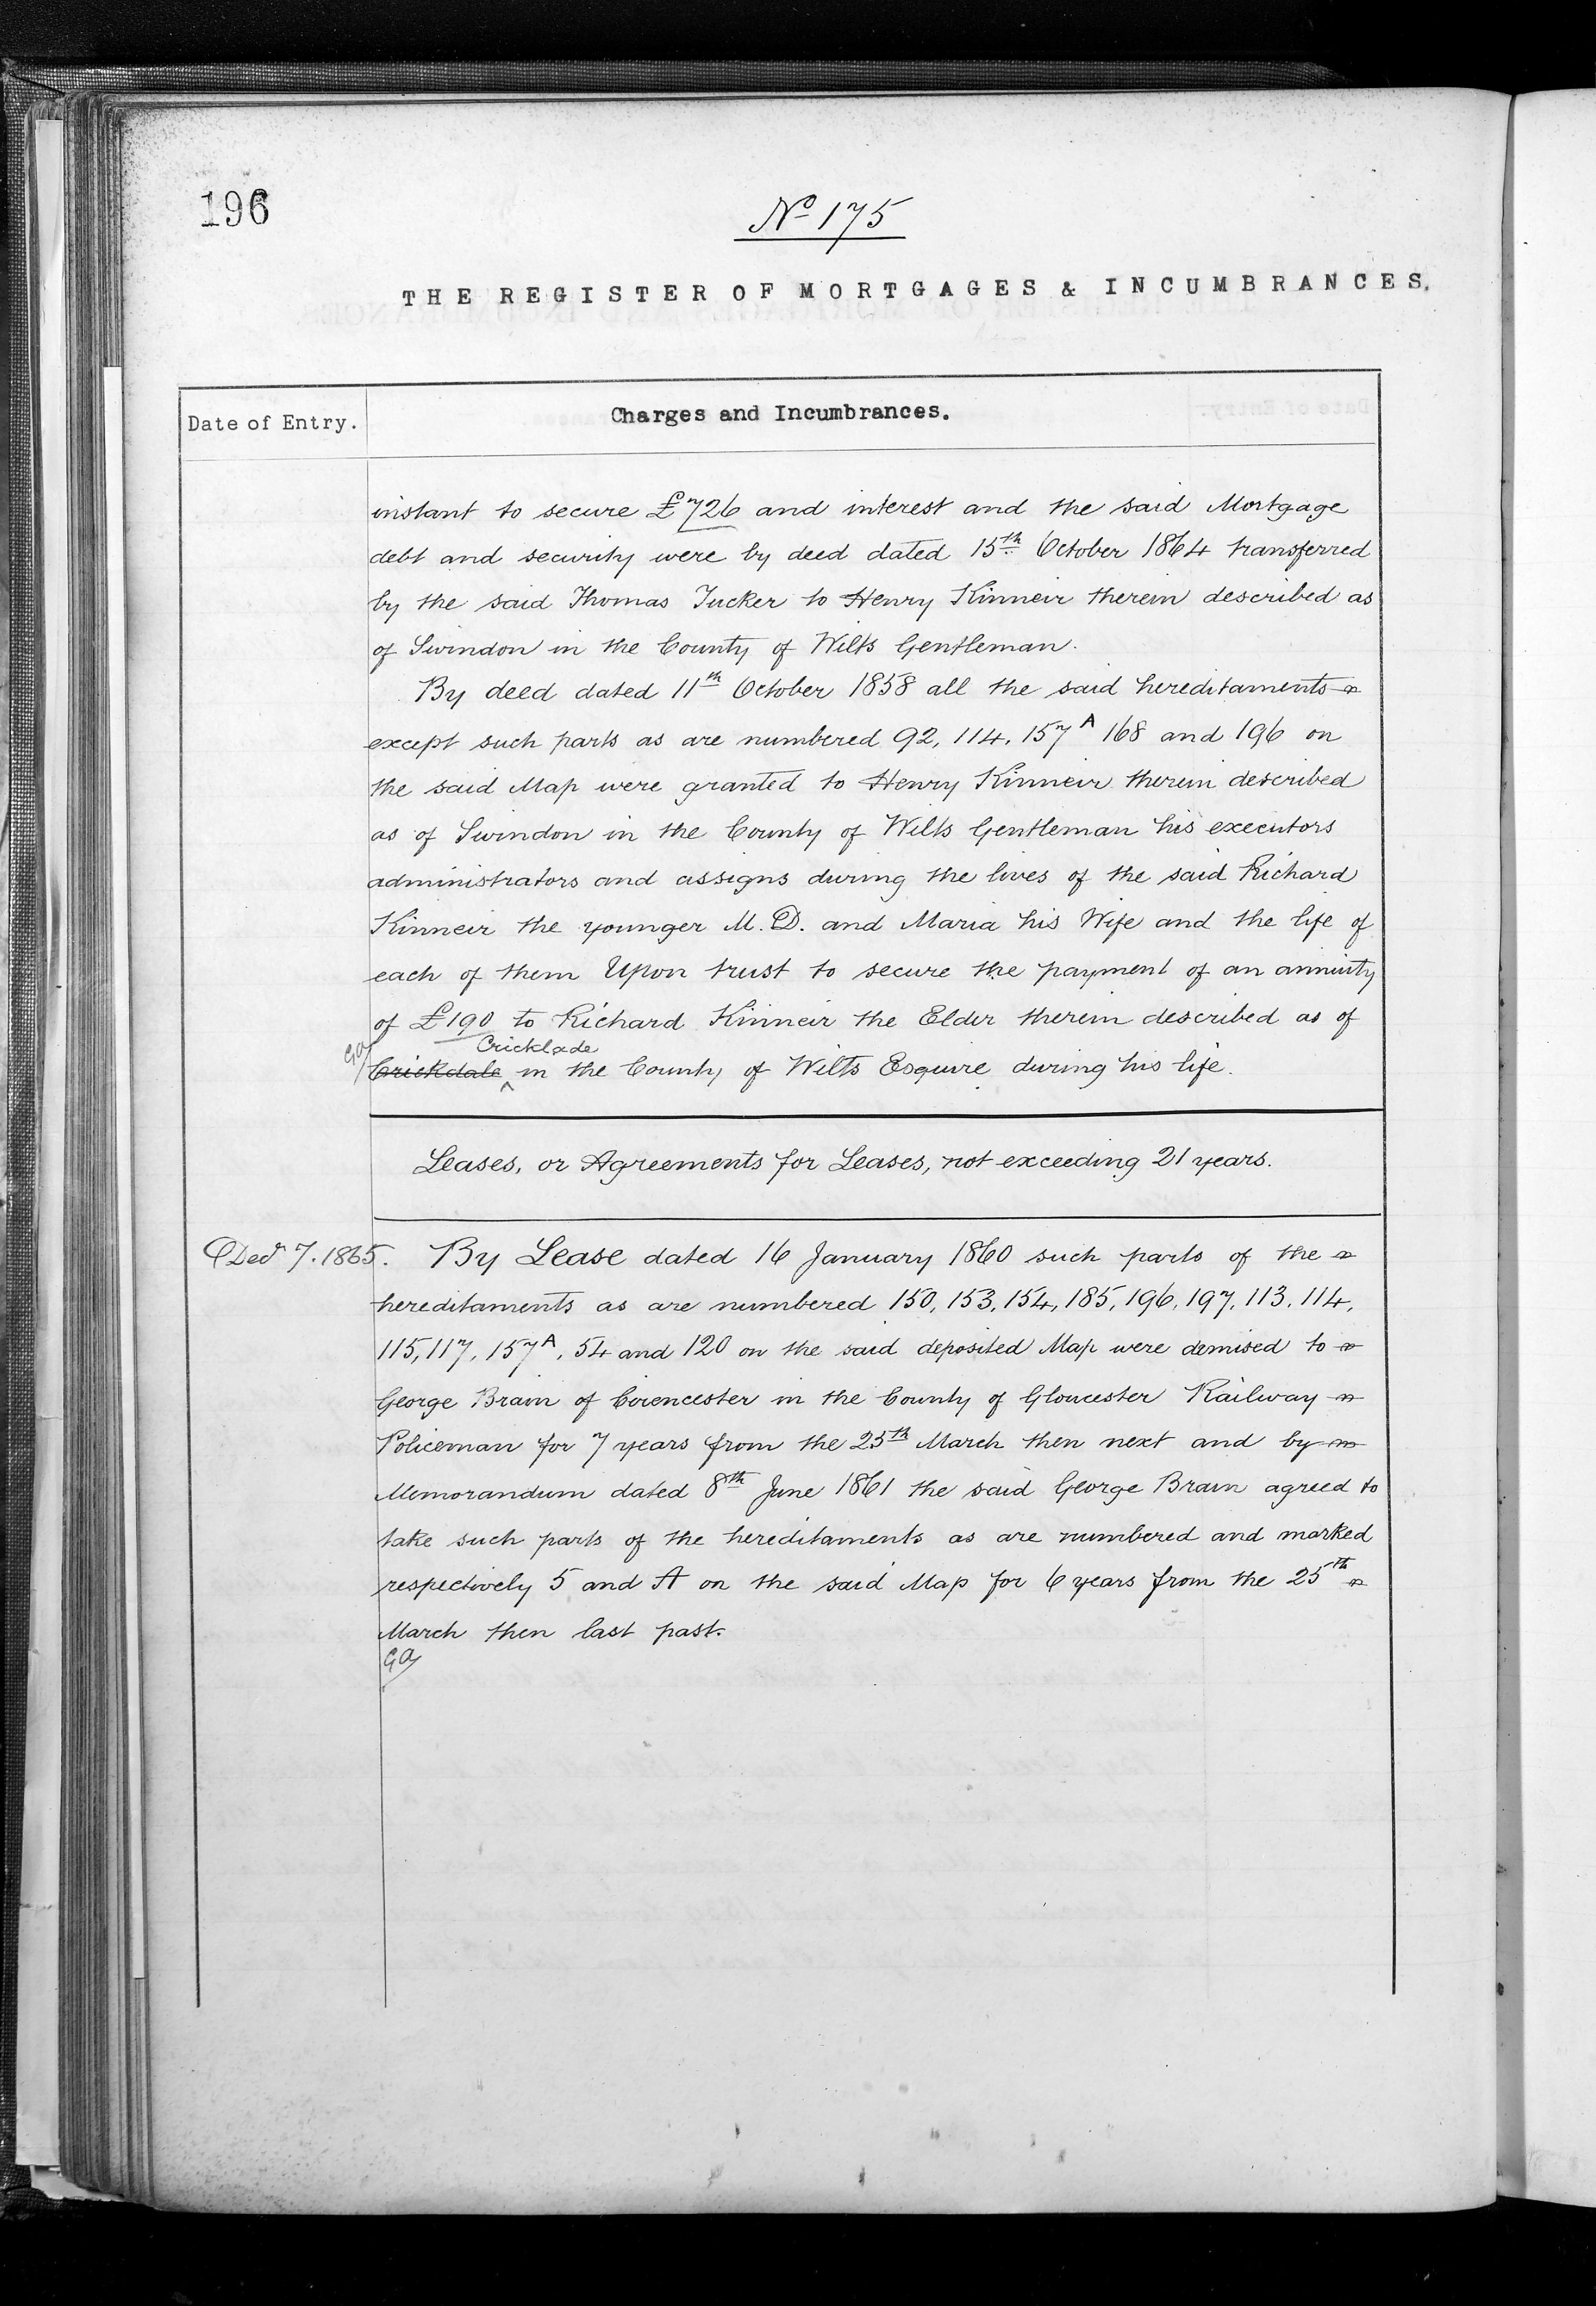 196
No 175
THE REGISTER OF MORTGAGES & INCUMBRANCES.
Date of Entry.
Charges and Incumbrances.
instant to secure £726 and interest and the said Mortgage
debt and security were by deed dated 15th October 1864 transferred
by the said Thomas Tucker to Henry Kinneir therein described as
of Swindon in the County of Wilts Gentleman.
By deed dated 11th October 1858 all the said hereditaments
except such parts as are numbered 92, 114, 157A 168 and 196 on
the said Map were granted to Henry Kinneir therein described
as of Swindon in the County of Wilts Gentleman his executors
administrators and assigns during the lives of the said Richard
Kinneir the younger M.D. and Maria his Wife and the life of
each of them Upon trust to secure the payment of an annuity
of £190 to Richard Kinneir the Elder therein described as of
Cricklade
Crickdale in the County of Wilts Esquire during his life.
Leases, or Agreements for Leases, not exceeding 21 years.
Decr 7. 1865. By Lease dated 16 January 1860 such parts of the
hereditaments as are numbered 150, 153, 154, 185, 196, 197, 113, 114,
115, 117, 157A, 54 and 120 on the said deposited Map were demised to
George Brain of Cirencester in the County of Gloucester Railway
Policeman for 7 years from the 25th March then next and by
Memorandum dated 8th June 1861 the said George Brain agreed to
take such parts of the hereditaments as are numbered and marked
respectively 5 and A on the said Map for 6 years from the 25th
March then last past.